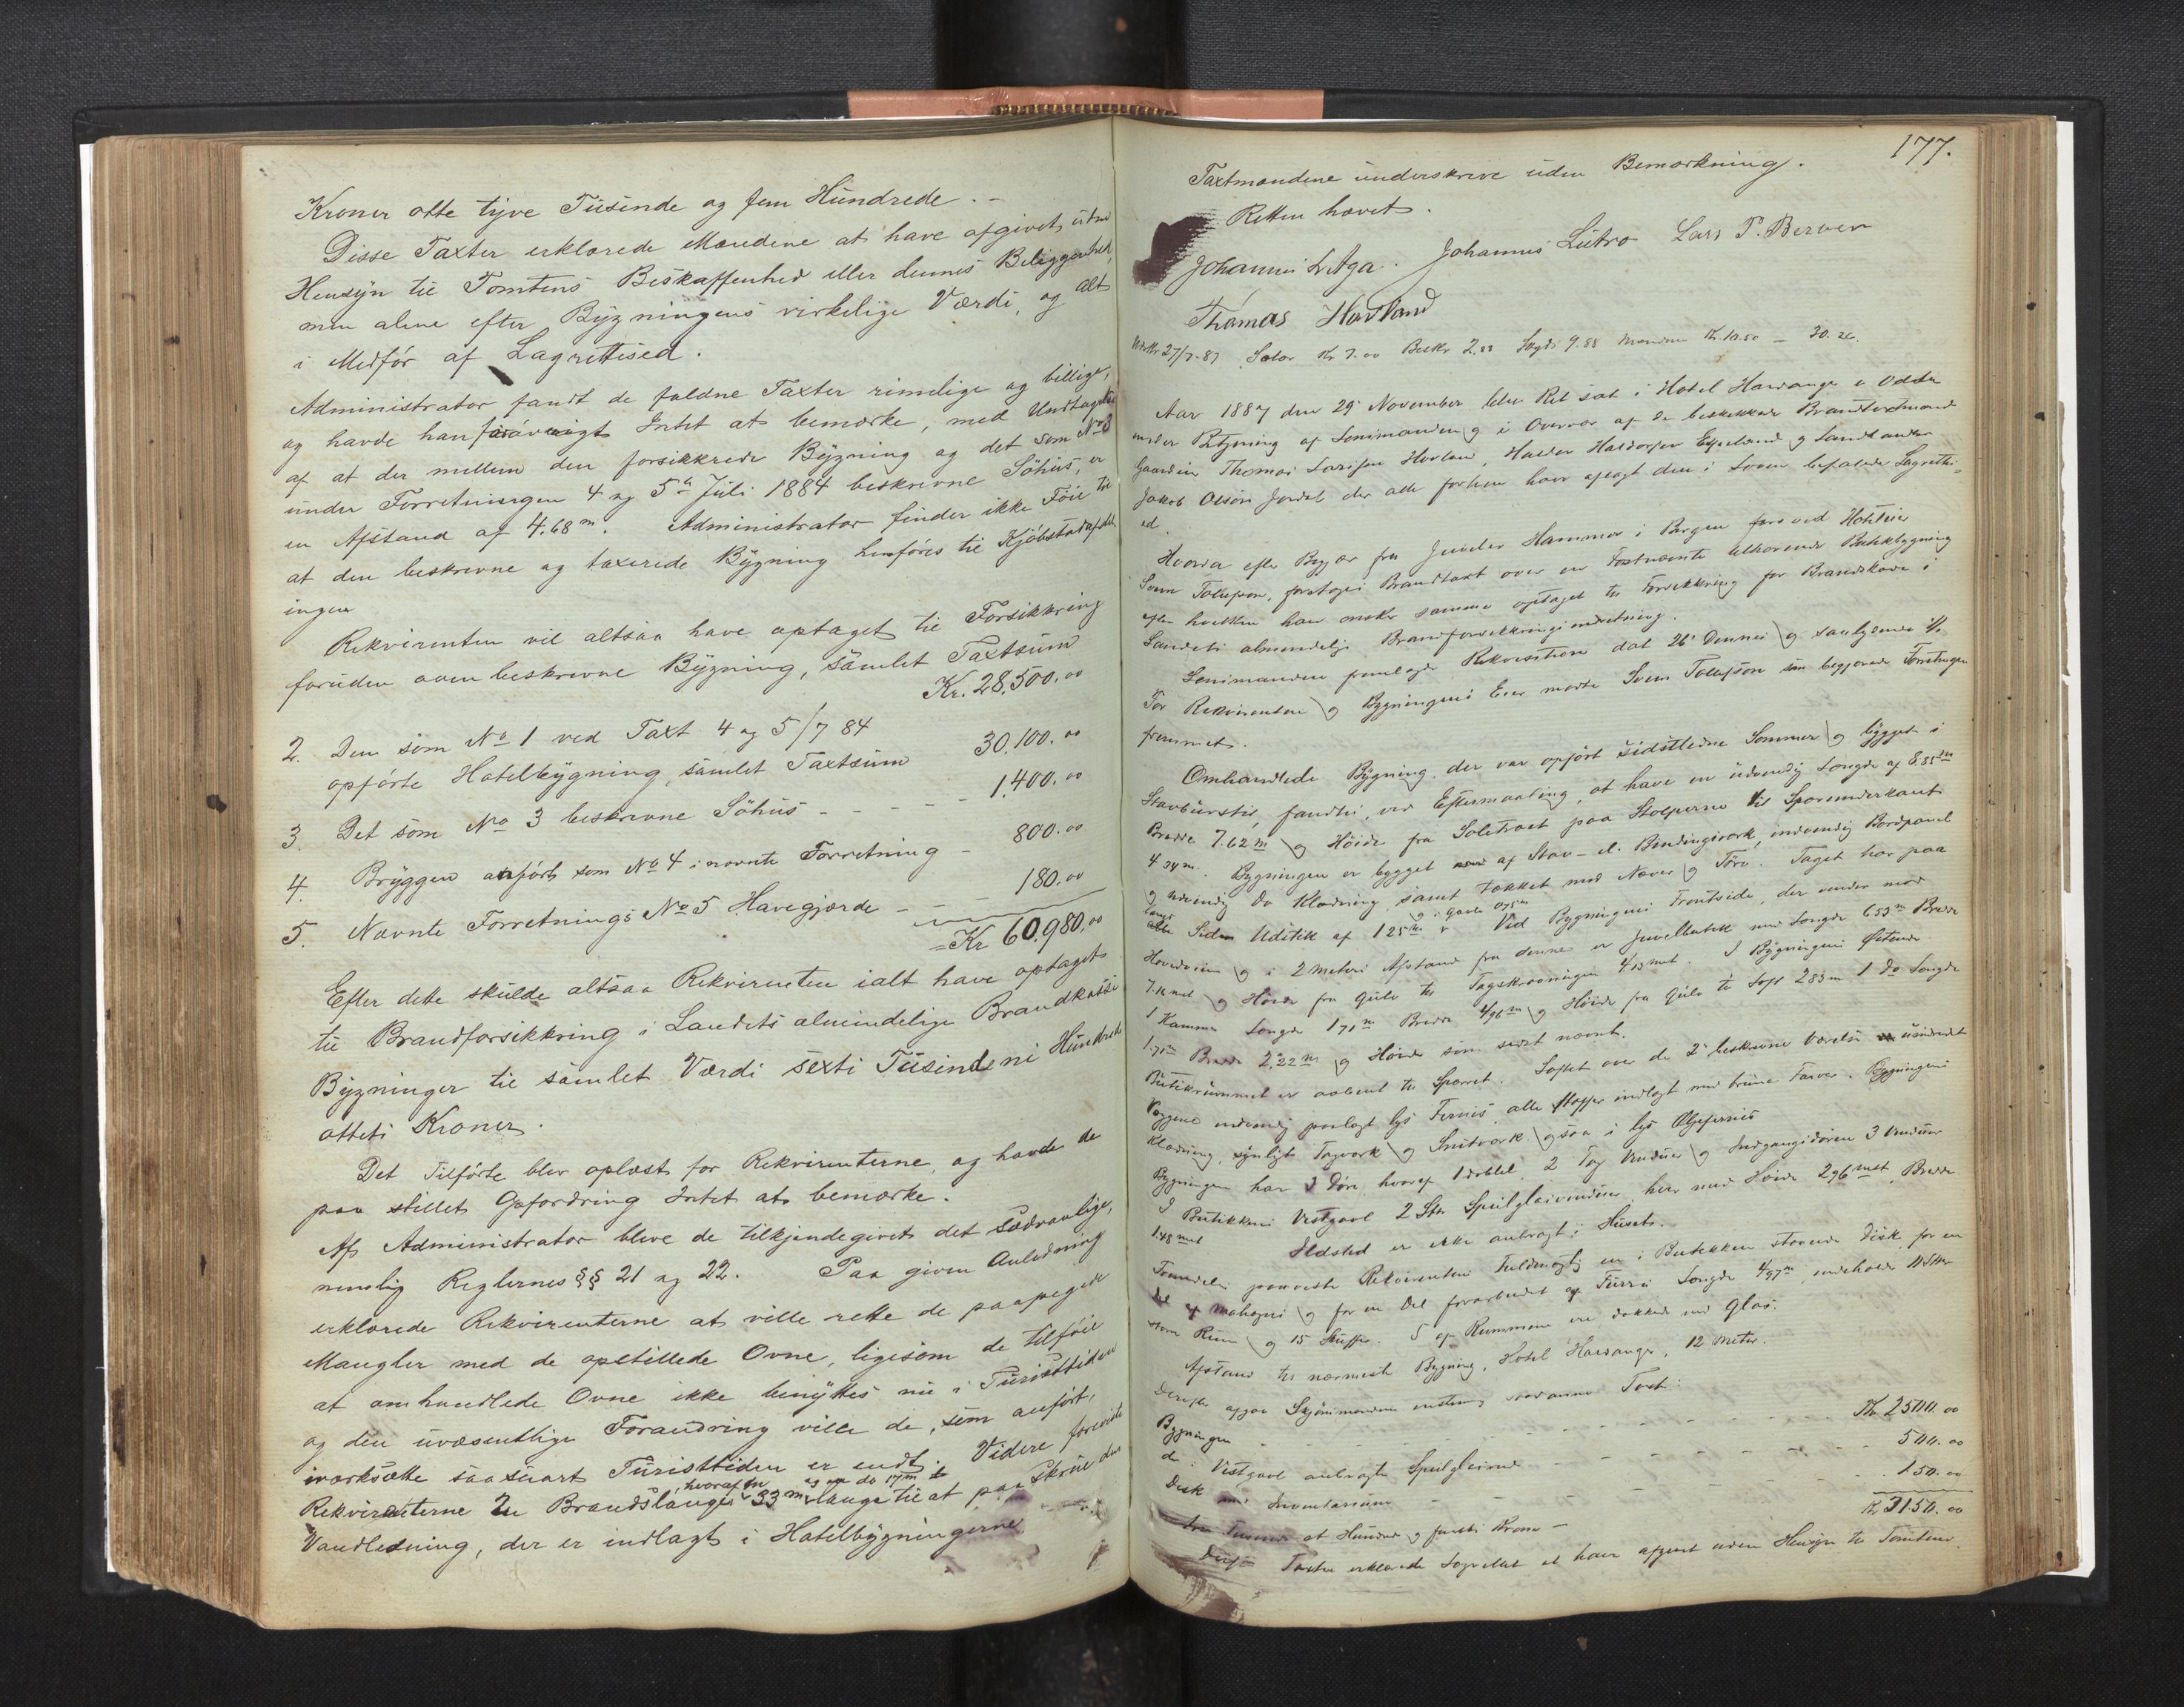 Kroner otte tyve Tusinde og fem Hundrede. –
Disse Taxter erklærede Mændene at have afgivet uden
Hensyn til Tomtens Beskaffenhed eller dennes Beliggenhed,
men alene efter Bygningens virkelige Værdi, og alt
i Medför af Lagrettesed.
Administrator fandt de faldne Taxter rimelige og billige,
og havde han forövrigt Intet at bemærke, med Undtagelse
af at der mellem den forsikkrede Bygning og det som No 3
under Forretningen 4 og 5te Juli 1884 beskrevne Söhus, er
en Afstand af 4.68 m. Administrator finder ikke Föie til
at den beskrevne og taxerede Bygning henföres til Kjöbstadafdel
ingen
Rekvirenten vil altsaa have optaget til Forsikkring
foruden oven beskrevne Bygning, samlet Taxtsum
Kr. 28,500.00
2. Den som No 1 ved Taxt 4 og 5/7 84
opförte Hotelbygning, samlet Taxtsum 30,100.00
3. Det som No 3 beskrevne Söhus - - - - - 1,400.00
4. Bryggen anfört som No 4 i nævnte Forretning - 800.00
5. Nævnte Forretnings No 5 Havegjærde - - - 180.00
= Kr 60,980.00
Efter dette skulde altsaa Rekvirenten ialt have optaget
til Brandforsikkring i Landets almindelige Brandkasse
Bygninger til samlet Værdi sexti Tusinde ni Hundrede
otteti Kroner.
Det Tilförte blev oplæst for Rekvirenterne, og havde de
paa stillet Opfordring Intet at bemærke.
Af Administrator bleve de tilkjendegivet det sædvanlige,
nemlig Reglernes §§ 21 og 22. Paa given Anledning
erklærede Rekvirenterne at ville rette de paapegede
Mangler med de opstillede Ovne, ligesom de tilföie
at omhandlede Ovne ikke benyttes nu i Turisttiden
og den uvæsentlige Forandring ville de, som anfört,
iværksætte saasnart Turisttiden er endt. Videre foreviste
hvoraf en og en do 17 m
Rekvirenterne 2 Brandslanger 33 m lange til at paa skrue den
Vandledning, der er indlagt i Hotelbygningerne
177.
Taxtmændene underskrive uden Bemærkning.
Retten hævet.
Johannes L Aga. Johannes Lutro Lars P. Berven
Thomas Hovland
Udskr 27/7-87 Salær Kr 7.00 Beskr 2.88 Skyds 9.88 Mændene Kr. 10.50 – 30.26.
Aar 1887 den 29 November blev Ret sat i Hotel Hardanger i Odda
under Betjening af Lensmanden og i Overvær af de beskikkede Brandtaxtmænd
Gaardm Thomas Larssen Hovland, Haldor Haldorsen Eitrheim og Landhandler
Jakob Olsön Jordal der alle forhen have aflagt den i Loven befalede Lagrettes-
ed.
Hvorda efter Begjær fra Juveler Hammer i Bergen foreved Hoteleier
Svein Tollefson, foretoges Brandtaxt over en Førstnævnte tilhørende Butikbygning
efter hvilken han ønsker samme optaget til Forsikkring for Brandskade i
Landets almindelige Brandforsikkringsindretning.
Lensmanden fremlagde Rekvisition dat 26 Dennes og saalydende
For Rekvirenten og Bygningens Eier mødte Svein Tollefsön som begjærede Forretningen
fremmet.
Omhandlede Bygning der var opfört sidstledne Sommer og bygget i
Stavburstil, fandtes, ved Eftermaaling, at have en udvendig Længde af 8.85 m
Bredde 7.62 m og Höide fra Soletræet paa Stolperne til Sperrunderkant
4.34 m. Bygningen er bygget af Stav- el. Bindingsværk, indvendig Bordpanel
og udvendig do Klædning, samt Tækket med Næver og Törv. Taget har paa
langs og i Gavle 075 m
Siden Udstik af 125 m. Ved Bygningens Frontside, der vender mod
Hovedveien og i 2 Meters Afstand fra denne er Juvelbutik med Længde 653 m Bredde
7.14 met og Höide fra Gulv til Tagskraaningen 4.13 met. I Bygningens Østende
1 Kammer Længde 171 m Bredde 4.96 m og Höide fra Gulv til Loft 283 m 1 do Længde
171 m Bredde 2.22 m og Höide som sidst nævnt.
Butikrummet er aabent til Sperret. Loftet over de 2 beskrevne Værelser uindredt
Væggene indvendig paalagt lys Fernis, alle Stopper indlagt med brune Farver. Bygningens
Klædning, synligt Tagværk og Snitværk ogsaa i lys Oljefernis
Bygningen har 3 Döre hvoraf 1 dobbel, 2 Fag Vinduer og Indgangsdören 3 Vinduer
I Butikkens Vestgavl 2 Stk Speilglasvinduer hver med Höide 296 met, Bredde
1.48 met Ildsted er ikke anbragt i Huset.
Fremdeles paaviste Rekvirentens Fuldmægtig en i Butikken staaende Disk, for en
Del af Mahogni og for en Del forarbeidet af Furru Længde 4/97 m indeholdende
store Rum og 15 Skuffer. 5 af Rummene ere dækkede med Glas.
Afstand til nærmeste Bygning, Hotel Hardanger, 12 Meter.
Derefter afgav Skjönsmændene enstemmig saadanne Taxt:
Bygningen - - - - - - - - - Kr 2500.00
de i Vestgavl anbragte Speilglasruder - - - - - 500.00
Disk med Inventarium - - - - - - 150.00
Kr 3150.00
tre Tusinde et Hundrede og femti Kroner –
Disse Taxter erklærede Lagrettet at have afgivet uden Hensyn til Tomtens